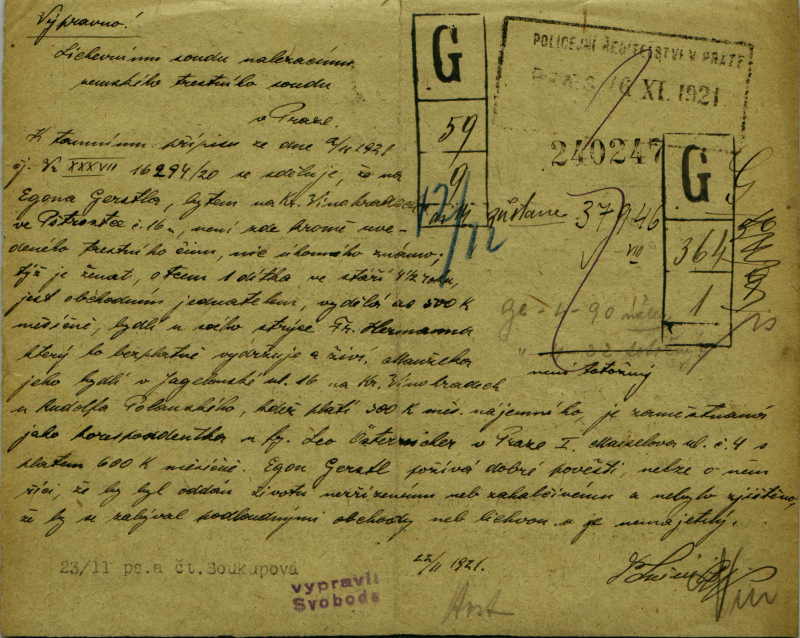 Výpravno!
Lichevnímu soudu nalezacímu
zemského trestního soudu
v Praze.
K tamnímu přípisu ze dne 2/11 1921
čj. Vr XXXVII 16294/20 se sděluje, že na
Egona Gerstla, bytem na Kr. Vinohradech
ve Petrostce č. 16, není zde kromě uve-
deného trestného činu, nic úhonného známo;
týž je ženat, otcem 1 dítka ve stáří 4 1/2 roku,
jest obchodním jednatelem, vydělá as 500 K
měsíčně, bydlí u svého strýce Fr. Hermanna
který ho bezplatně vydržuje a živí. Manželka
jeho bydlí v Jagelonské ul. 16 na Kr. Vinohradech
u Rudolfa Polanského, kdež platí 300 K měs. nájemného, je zaměstnaná
jako korespondentka u fy. Leo Österreicher v Praze I. Maiselova ul. č. 4 s
platem 600 K měsíčně. Egon Gerstl požívá dobré pověsti, nelze o něm
říci, že by byl oddán životu neřízenému neb zahálčivému a nebylo zjištěno,
že by se zabýval podloudnými obchody neb lichvou a je nemajetný.
22/11 1921.
23/11 ps.a čt.Soukupová
vypravil
Svoboda
G
59
9
POLICEJNÍ ŘEDITELSTVÍ V PRAZE
XI. 1921
240247
G
364
1
zůstane
37946
VIII
není totožný